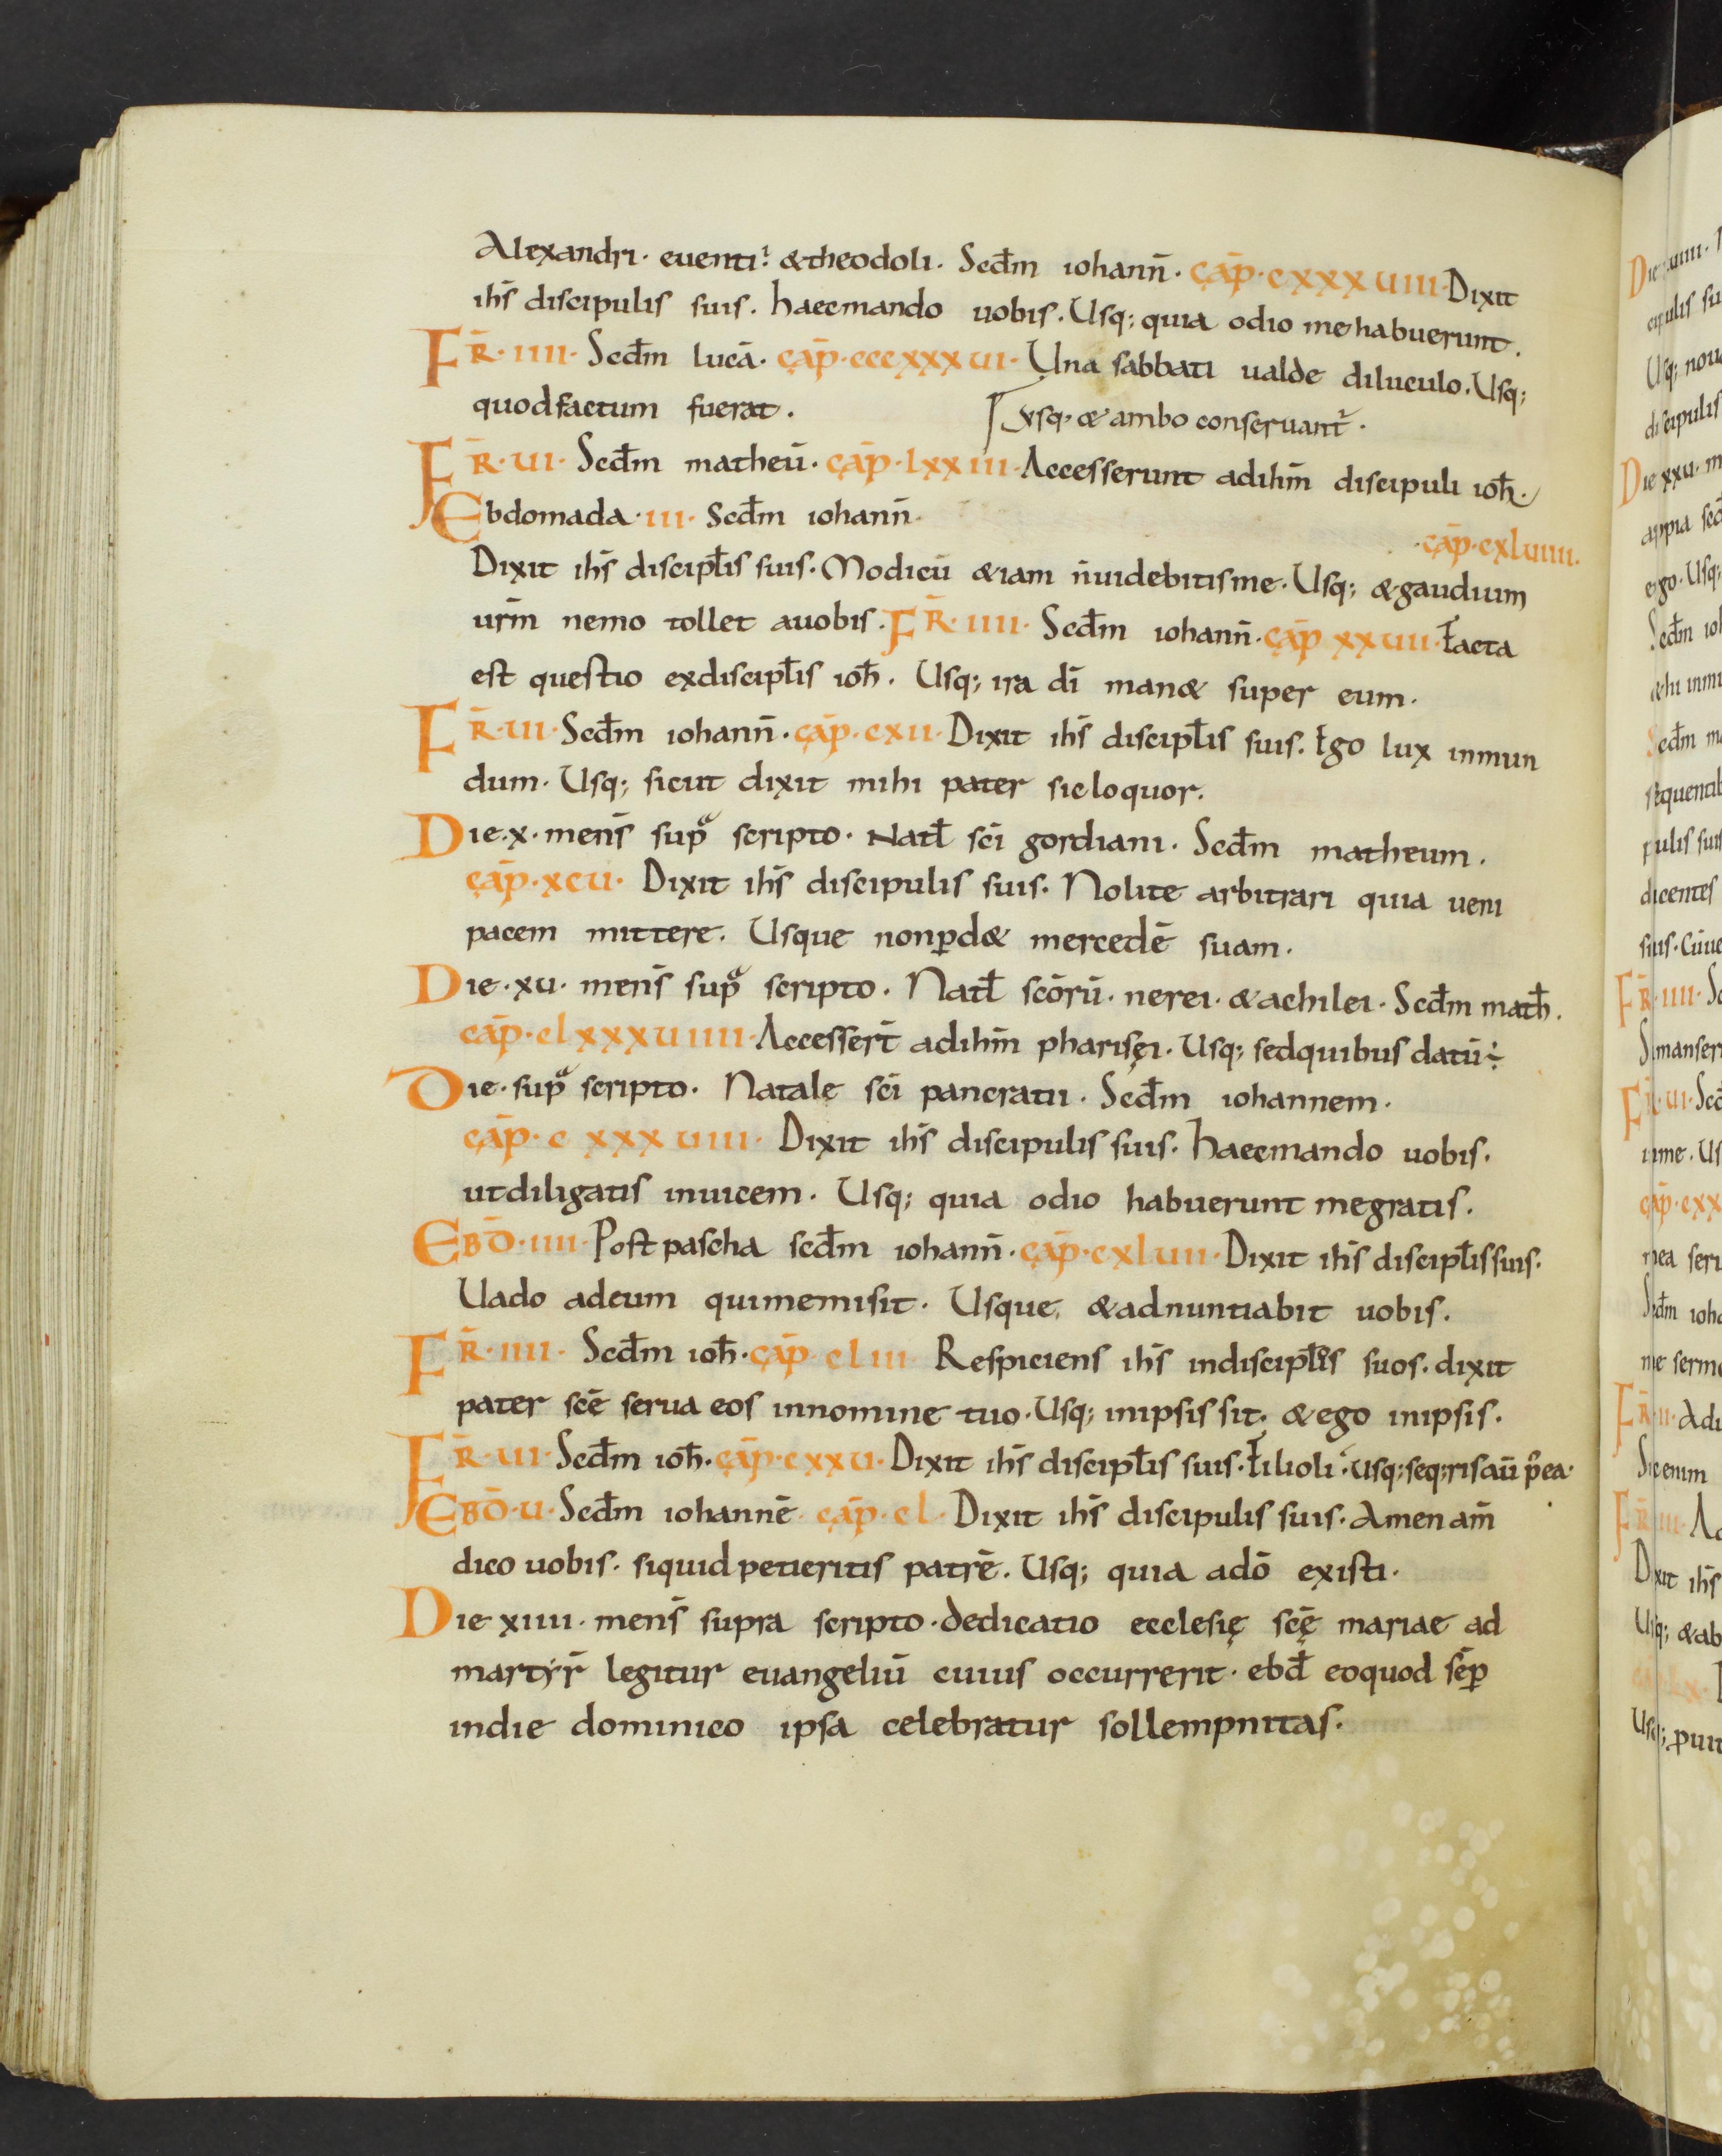 Alexandri. euenti. &theodoli. Scđm iohanñ. cāp. cxxxuiiii. Dixit
ihs̄ discipulis suis. haecmando uobis. Usq; quia odio mehabuerunt.
FR̄. iiii. Scđm lucā. cāp. cccxxxui. Una sabbati ualde diluculo. Usq;
quodfactum fuerat.
usq. & ambo conseruant̄.
FR̄. ui. Scđm matheū. cāp. lxxiii. Accesserunt adihm̄ discipuli ioħ.
Ebdomada. iii. Scđm iohanñ.
cāp. cxluiiii.
Dixit ihs̄ discipłis suis. Modicū &iam ñuidebitisme. Usq; &gaudium
urm̄ nemo tollet auobis. FR̄. iiii. Scđm iohanñ. cāp xxuiii. Facta
est questio exdiscipłis ioħ. Usq; ira dī man& super eum.
FR̄. ui. Scđm iohanñ. cāp. cxii. Dixit ihs̄ discipłis suis. Ego lux inmun
dum. Usq; sicut dixit mihi pater sicloquor.
Die. x. mens̄ sup̷ scripto. Natł sc̄i gordiani. Scđm matheum.
cāp. xcu. Dixit ihs̄ discipulis suis. Nolite arbitrari quia ueni
pacem mittere. Usque nonꝑd& mercedē suam.
Die. xu. mens̄ sup̷ scripto. Natł sc̄orū. nerei. &achilei. Scđm matħ.
cāp. clxxxuiiii. Accesser̄t adihm̄ pharisęi. Usq; sedquibus datū÷
Die. sup̷ scripto. Natale sc̄i pancratii. Scđm iohannem.
cāp. c xxx uiiii. Dixit ihs̄ discipulis suis. haecmando uobis.
utdiligatis inuicem. Usq; quia odio habuerunt megratis.
EBD̄. iiii. Postpascha scđm iohanñ. cāp. cxluii. Dixit ihs̄ discipłissuis.
Uado adeum quimemisit. Usque, &adnuntiabit uobis.
FR̄. iiii. Scđm ioħ. cāp. cliii. Respiciens ihs̄ indiscipłos suos. dixit
pater sc̄e serua eos innomine tuo. Usq; inipsis sit. &ego inipsis.
FR̄. ui. Scđm ioħ. cāp. cxxu. Dixit ihs̄ discipłis suis. Filioli. usq; seq;risaū p̄ea.
EBD̄. u. Scđm iohannē. cāp. cl. Dixit ihs̄ discipulis suis. Amen am̄
dico uobis. siquid petieritis patrē. Usq; quia adō existi.
Die xiiii. mens̄ supra scripto. dedicatio ecclesię sc̄ę mariae ad
martyr̄ legitur euangeliū cuius occurrerit. ebđ eoquod sēꝑ
indie dominico ipsa celebratur sollempnitas.